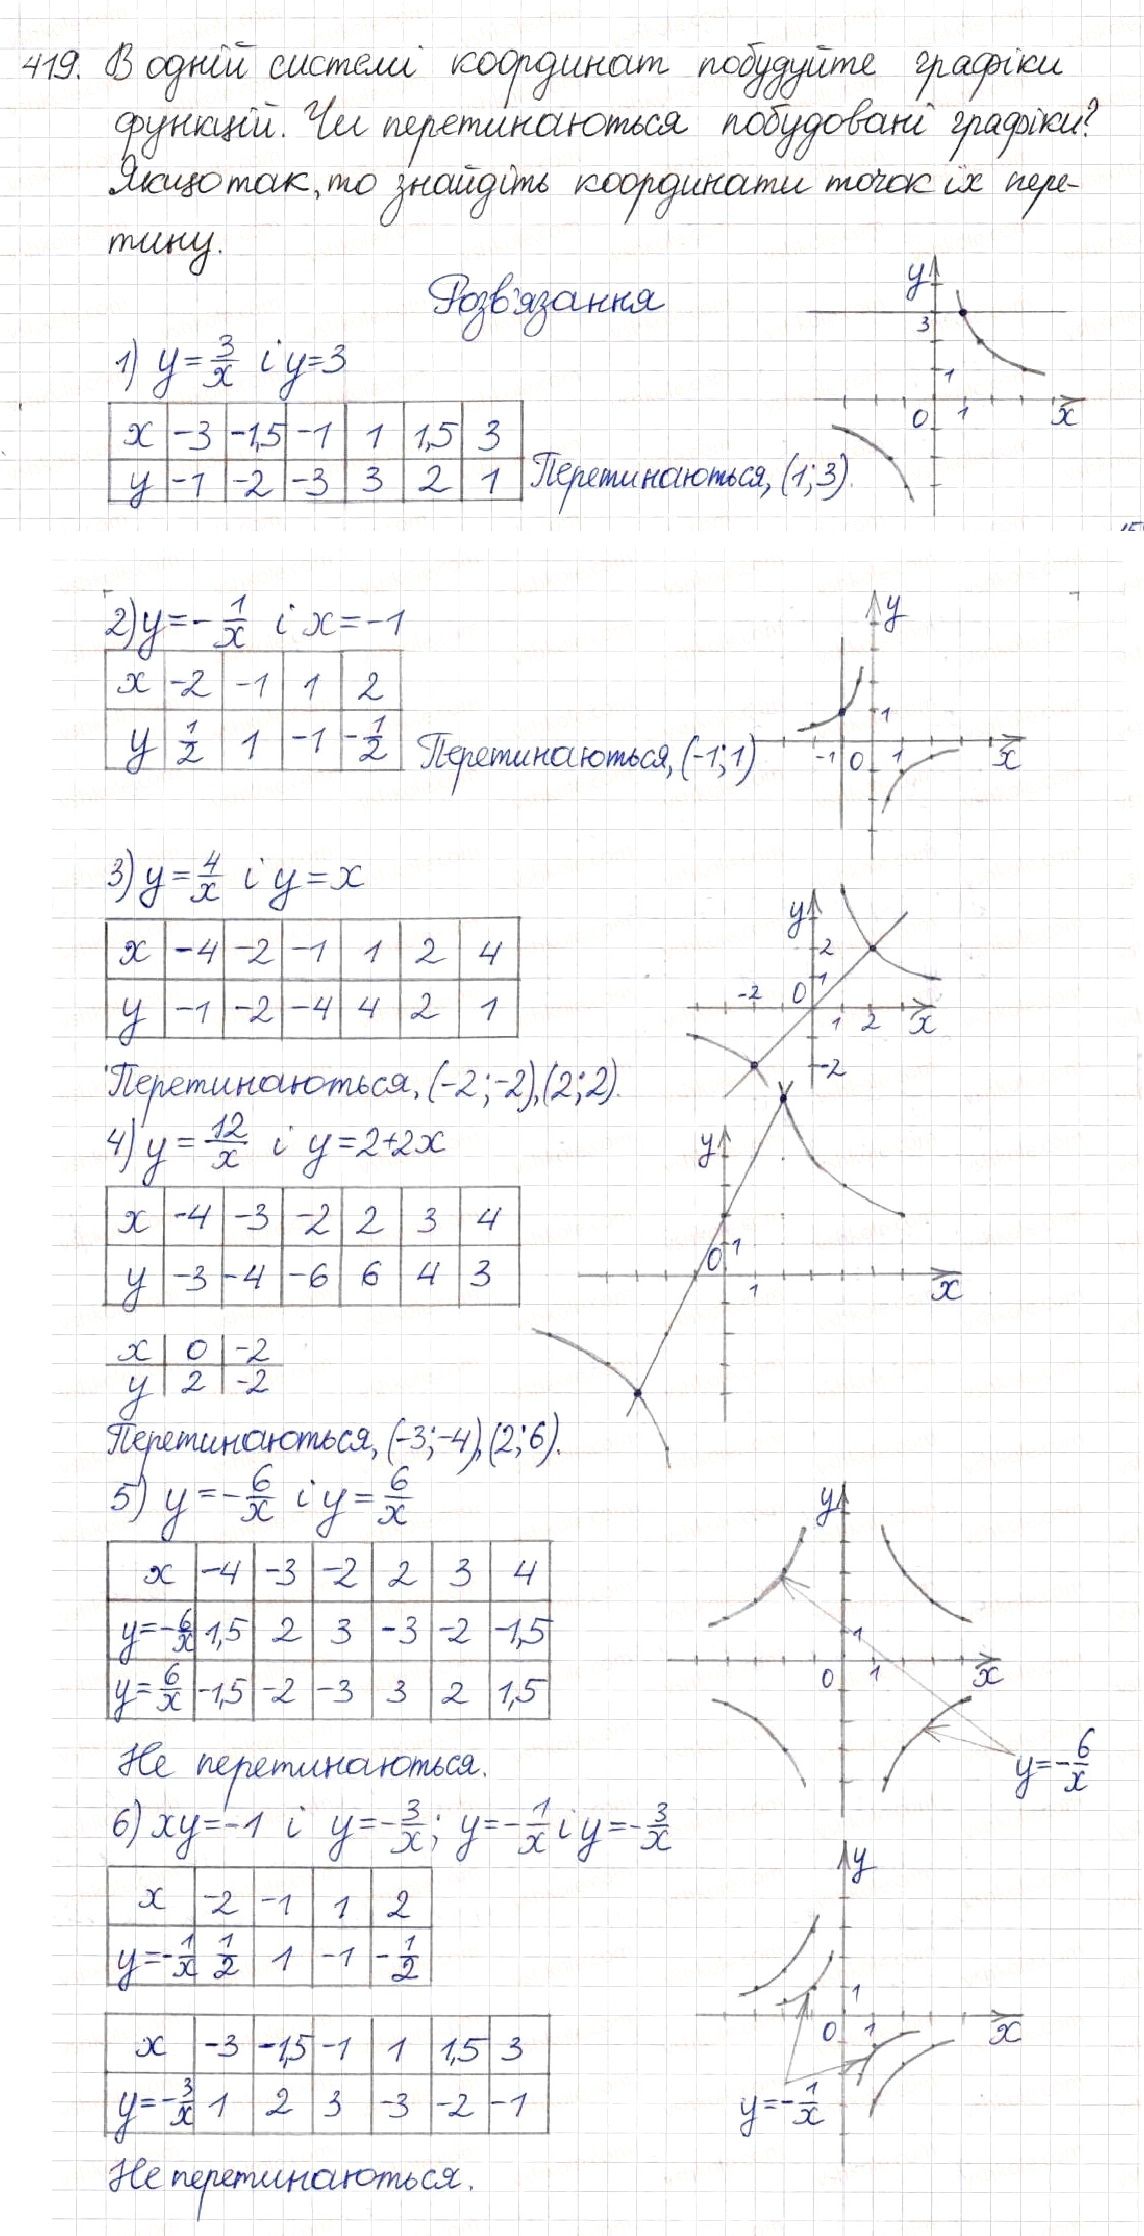 419. В одній системі координат побудуйте графіки
функцій. Чи перетинаються побудовані графіки?
Якщо так, то знайдіть координати точок їх пере-
тину.
Розв'язання
1) y = 3/x і y = 3
x -3 -1,5 -1 1 1,5 3
y -1 -2 -3 3 2 1
Перетинаються, (1; 3).
y
3
1
0 1 x
2) y = -1/x і x = -1
x -2 -1 1 2
y 1/2 1 -1 -1/2
Перетинаються, (-1; 1)
y
1
-1 0 1 x
3) y = 4/x і y = x
x -4 -2 -1 1 2 4
y -1 -2 -4 4 2 1
Перетинаються, (-2; -2), (2; 2).
y
2
1
-2 0
1 2 x
-2
4) y = 12/x і y = 2+2x
x -4 -3 -2 2 3 4
y -3 -4 -6 6 4 3
x 0 -2
y 2 -2
Перетинаються, (-3; -4), (2; 6).
y
1
0
1 x
5) y = -6/x і y = 6/x
x -4 -3 -2 2 3 4
y=-6/x 1,5 2 3 -3 -2 -1,5
y=6/x -1,5 -2 -3 3 2 1,5
Не перетинаються.
y
1
0 1 x
y=-6/x
6) xy = -1 і y = -3/x; y = -1/x і y = -3/x
x -2 -1 1 2
y=-1/x 1/2 1 -1 -1/2
x -3 -1,5 -1 1 1,5 3
y=-3/x 1 2 3 -3 -2 -1
Не перетинаються.
y
1
0 1 x
y=-1/x